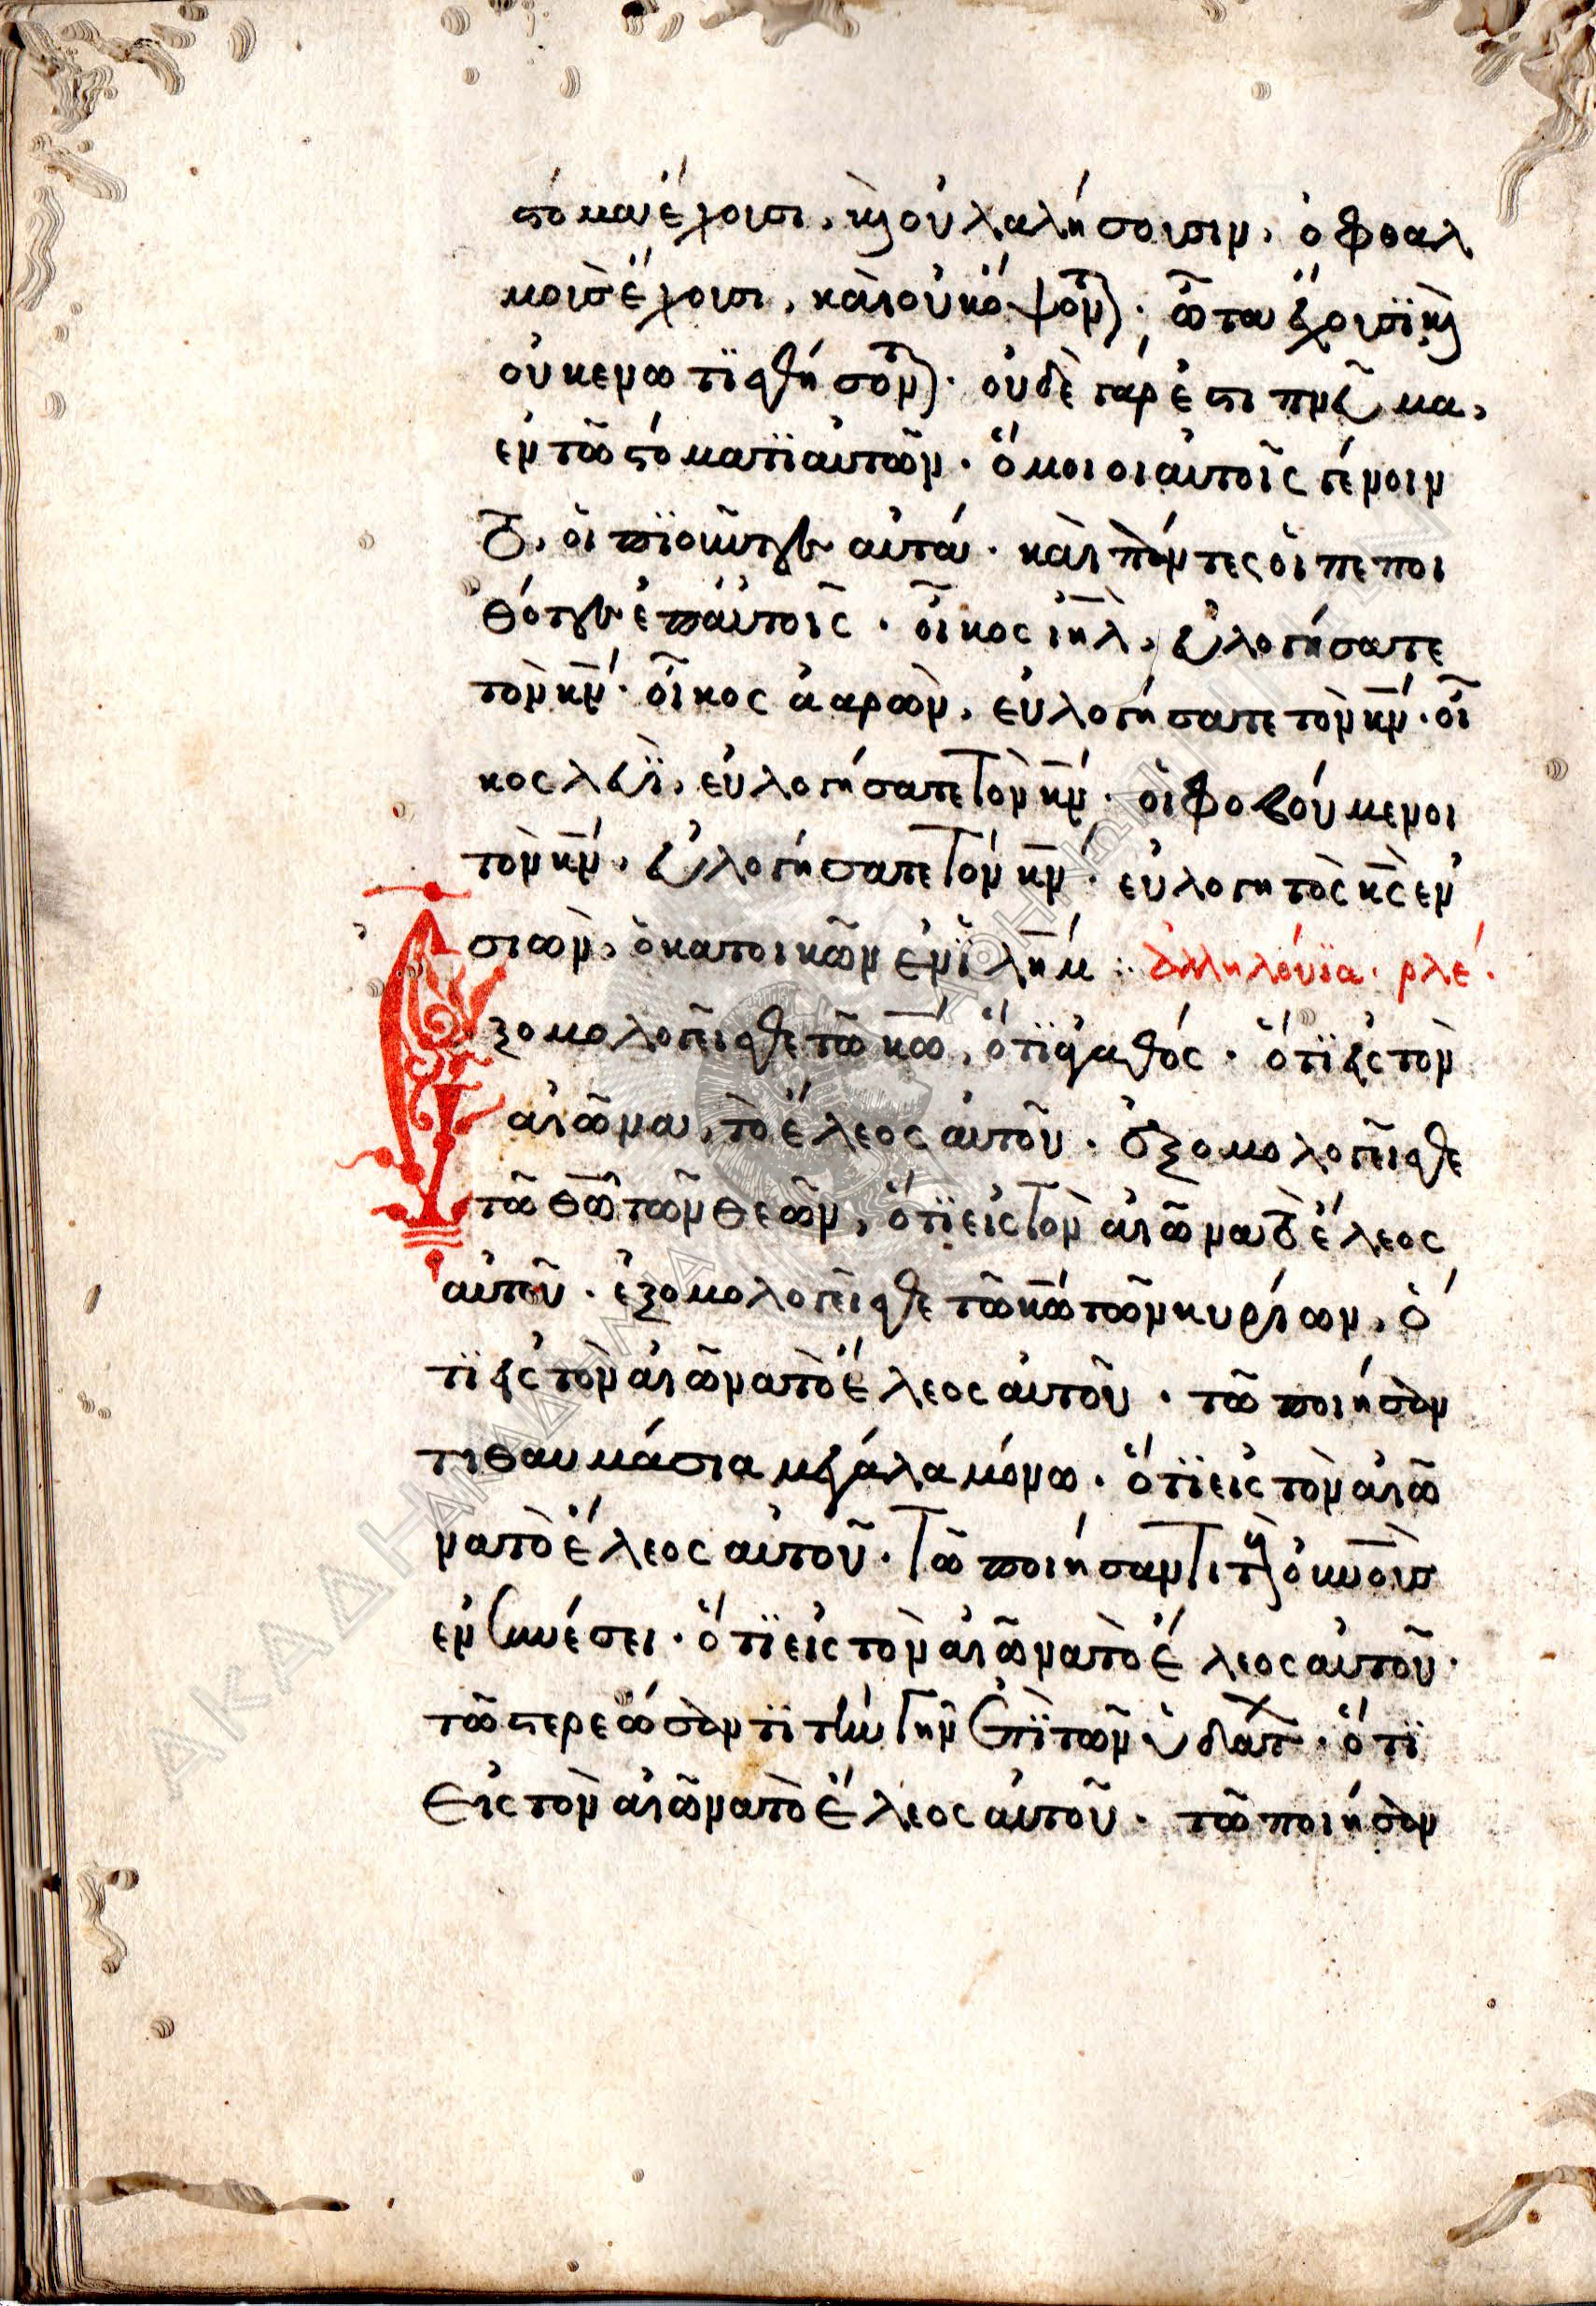 στόμα ἔχουσι, καὶ οὐ λαλήσουσιν, ὀφθαλ
μοὺς ἔχουσι, καὶ οὐκ ὄψονται· ὦτα ἔχουσϊ καὶ
οὐκ ενωτϊσθήσονται· οὐδὲ γάρ ἐστι πνεῦμα,
ἐν τῶ στόματϊ αὐτῶν· ὅμοιοι αὐτοῖς γένοιν
το, οἱ ποιοῦντες αὐτά· καὶ πάντες οἱ πεποι
θότες ἐπ' αὐτοῖς· οἶκος ιηλ, εὐλογήσατε
τὸν κν· οἶκος ἀαρὼν, εὐλογήσατε τὸν κν· οἶ
κος λευϊ, εὐλογήσατε τὸν κν· οἱ φοβούμενοι
τὸν κν, εὐλογήσατε τὸν κν· εὐλογητὸς κς ἐν
σιὼν, ὁ κατοικῶν ἐν ϊλημ: ἀλληλούϊα· ρλέ·
ξομολογεῖσθε τῶ κω, ὅτϊ ἀγαθός· ὅτϊ εἰς τὸν
αἰῶνα, τὸ ἔλεος αὐτοῦ· ἐξομολογεῖσθε
τῶ θω τῶν θεῶν, ὅτϊ εἰς τὸν αἰῶνα τὸ ἔλεος
αὐτοῦ· ἐξομολογεῖσθε τῶ κω τῶν κυρίων, ὅ
τϊ εἰς τὸν αἰῶνα τὸ ἔλεος αὐτοῦ· τῶ ποιήσαν
τι θαυμάσια μεγάλα μόνω· ὅτϊ εἰς τὸν αἰῶ
να τὸ ἔλεος αὐτοῦ· τῶ ποιήσαντι τοὺς οὐνοὺς
ἐν συνέσει· ὅτϊ εἰς τὸν αἰῶνα τὸ ἔλεος αὐτοῦ·
τῶ στερεώσαντϊ τὴν γῆν ἐπὶ τῶν ὑδάτων· ὅτϊ
εἰς τὸν αἰῶνα τὸ ἔλεος αὐτοῦ· τῶ ποιήσαν
ΑΚΑΔΗΜΙΑ ΑΘΗΝΩΝ